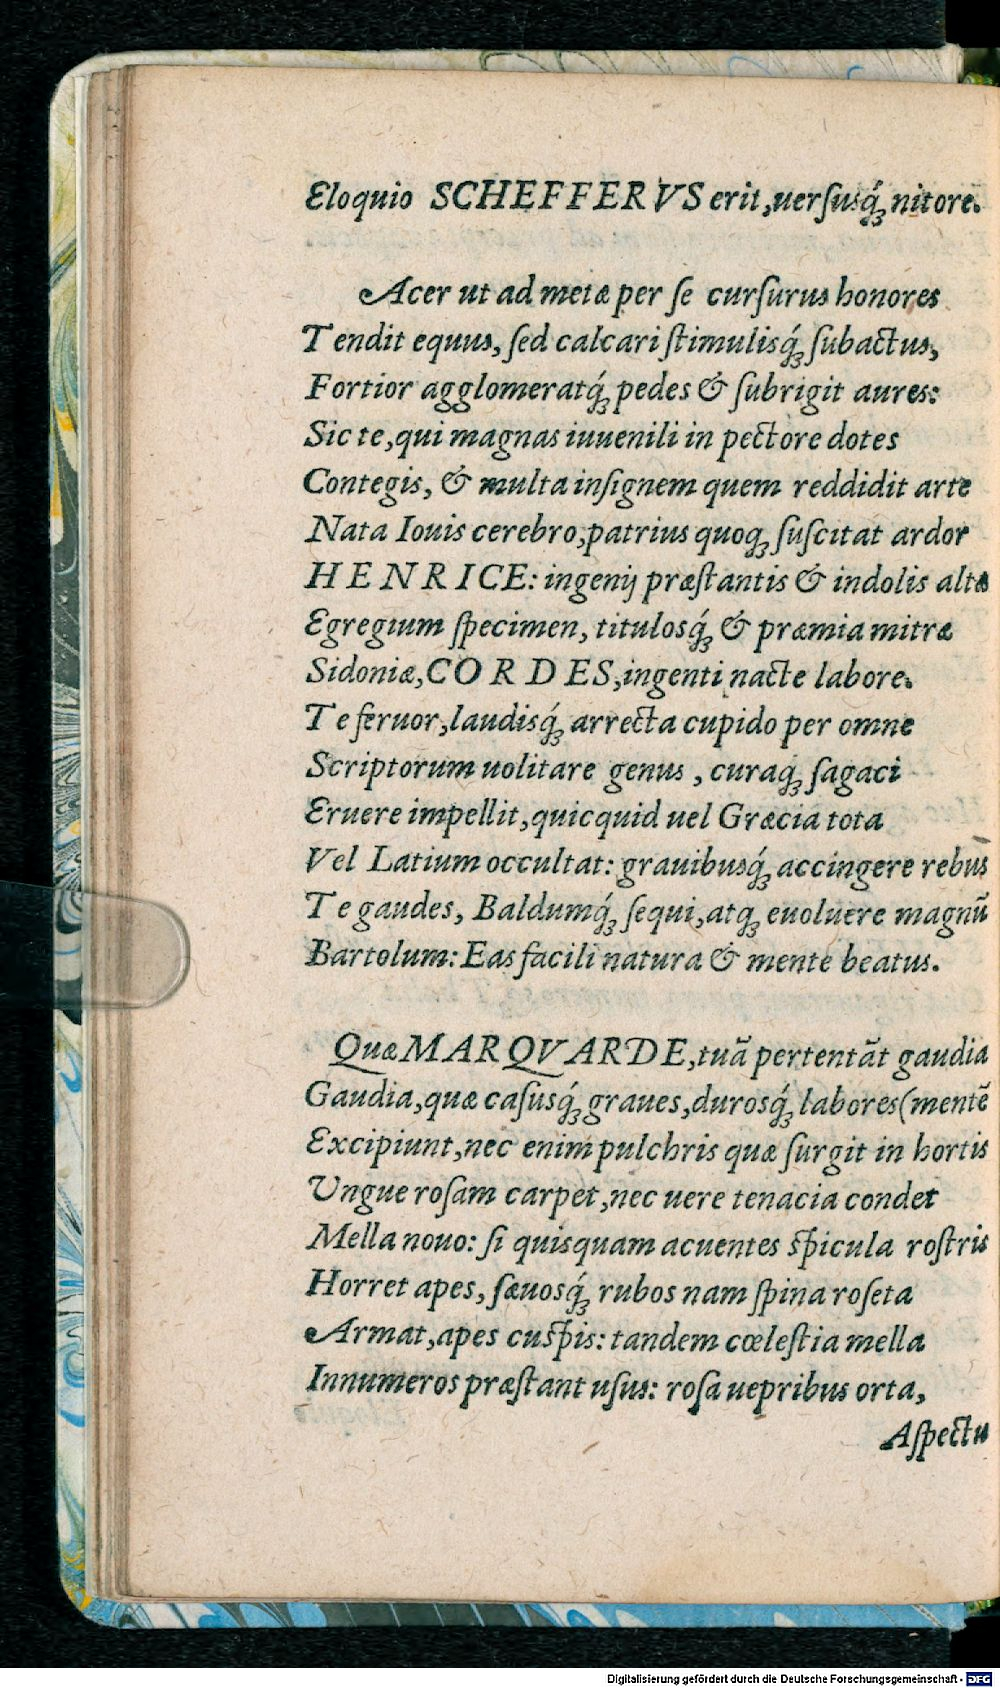 Eloquio SCHEFFERVS erit, uerſusq́ꝫ nitore.
Acer ut ad metæ per ſe curſurus honores
Tendit equus, ſed calcari ſtimulisq́ꝫ ſubactus,
Fortior agglomeratq́ꝫ pedes & ſubrigit aures:
Sic te, qui magnas iuuenili in pectore dotes
Contegis, & multa inſignem quem reddidit arte
Nata Iouis cerebro, patrius quoqꝫ ſuſcitat ardor
HENRICE: ingenij præſtantis & indolis altæ
Egregium ſpecimen, titulosq́ꝫ & præmia mitræ
Sidoniæ, CORDES, ingenti nacte labore.
Te feruor, laudisq́ꝫ arrecta cupido per omne
Scriptorum uolitare genus, curaqꝫ ſagaci
Eruere impellit, quicquid uel Græcia tota
Vel Latium occultat: grauibusq́ꝫ accingere rebus
Te gaudes, Baldumq́ꝫ ſequi, atqꝫ euoluere magnũ
Bartolum: Eas facili natura & mente beatus.
Quæ MARQVARDE, tuã pertentãt gaudia
Gaudia, quæ caſusq́ꝫ graues, durosq́ꝫ labores (mentẽ
Excipiunt, nec enim pulchris quæ ſurgit in hortis
Ungue roſam carpet, nec uere tenacia condet
Mella nouo: ſi quisquam acuentes ſpicula roſtris
Horret apes, ſæuosq́ꝫ rubos nam ſpina roſeta
Armat, apes cuſpis: tandem cœleſtia mella
Innumeros præſtant uſus: roſa uepribus orta,
Aſpectu
Digitalisierung gefördert durch die Deutsche Forschungsgemeinschaft - DFG